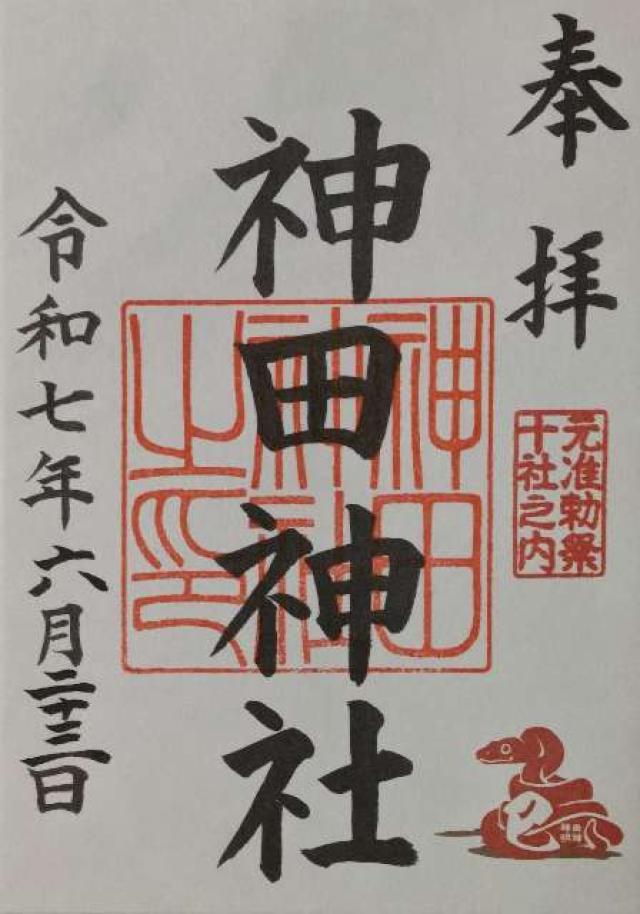 奉拝
元准勅祭
十社之内
神田神社
神田神社之印
令和七年六月二十三日
巳